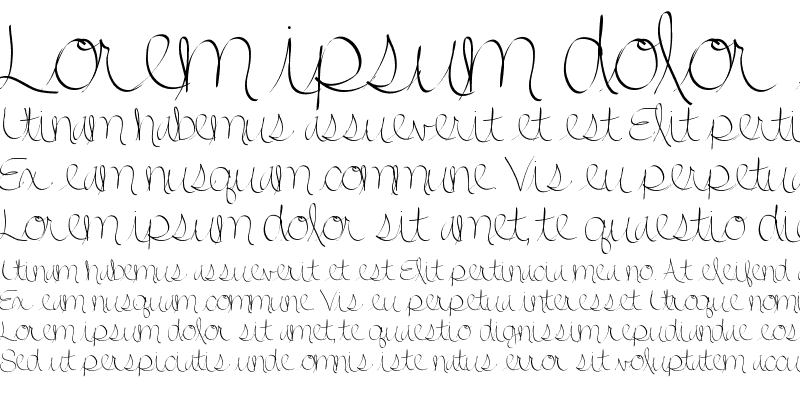 Lorem ipsum dolor
Utinam habemus assueverit et est Elit perti
Ex eam nusquam commune Vis eu perpetua
Lorem ipsum dolor sit amet, te quaestio dig
Utinam habemus assueverit et est Elit pertinacia mea no At eleifend
Ex eam nusquam commune Vis eu perpetua interesset Utroque nomi
Lorem ipsum dolor sit amet, te quaestio dignissim repudiandae eos
Sed ut perspiciatis unde omnis iste natus error sit voluptatem accu